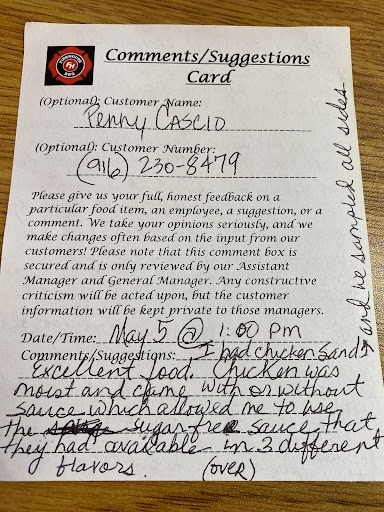 Comments/Suggestions
Card
(Optional): Customer Name:
Penny Cascio
(Optional): Customer Number:
(916) 230-8479
Please give us your full, honest feedback on a
particular food item, an employee, a suggestion, or a
comment. We take your opinions seriously, and we
make changes often based on the input from our
customers! Please note that this comment box is
secured and is only reviewed by our Assistant
Manager and General Manager. Any constructive
criticism will be acted upon, but the customer
information will be kept private to those managers.
Date/Time: May 5 @ 1:00 pm
Comments/Suggestions: I had chicken Sand
→ and we sampled all sides.
Excellent food. Chicken was
moist and came with or without
sauce which allowed me to use
the sugar-free sauce that
they had available in 3 different
flavors. (over)